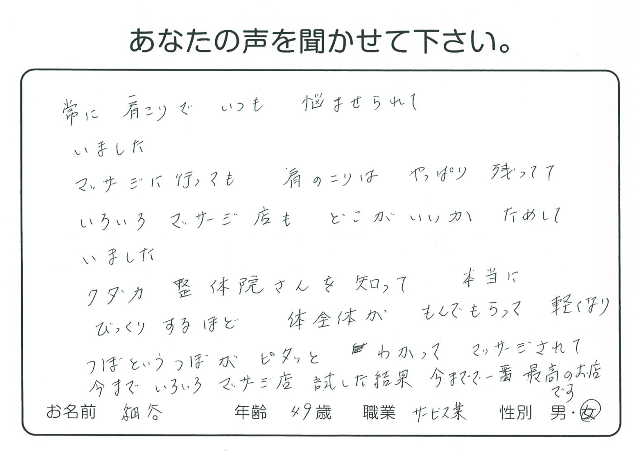 あなたの声を聞かせて下さい。
常に 肩こりで いつも 悩ませられて
いました
マッサージに行っても 肩のこりは やっぱり 残ってて
いろいろ マッサージ店も どこがいいか ためして
いました
クダカ 整体院さんを知って 本当に
びっくりするほど 体全体が もんでもらって 軽くなり
つぼというつぼが ピタッと わかって マッサージされて
今まで いろいろ マッサージ店 試した結果 今までで一番 最高のお店
です
お名前 細谷 年齢 49歳 職業 サービス業 性別 男・女